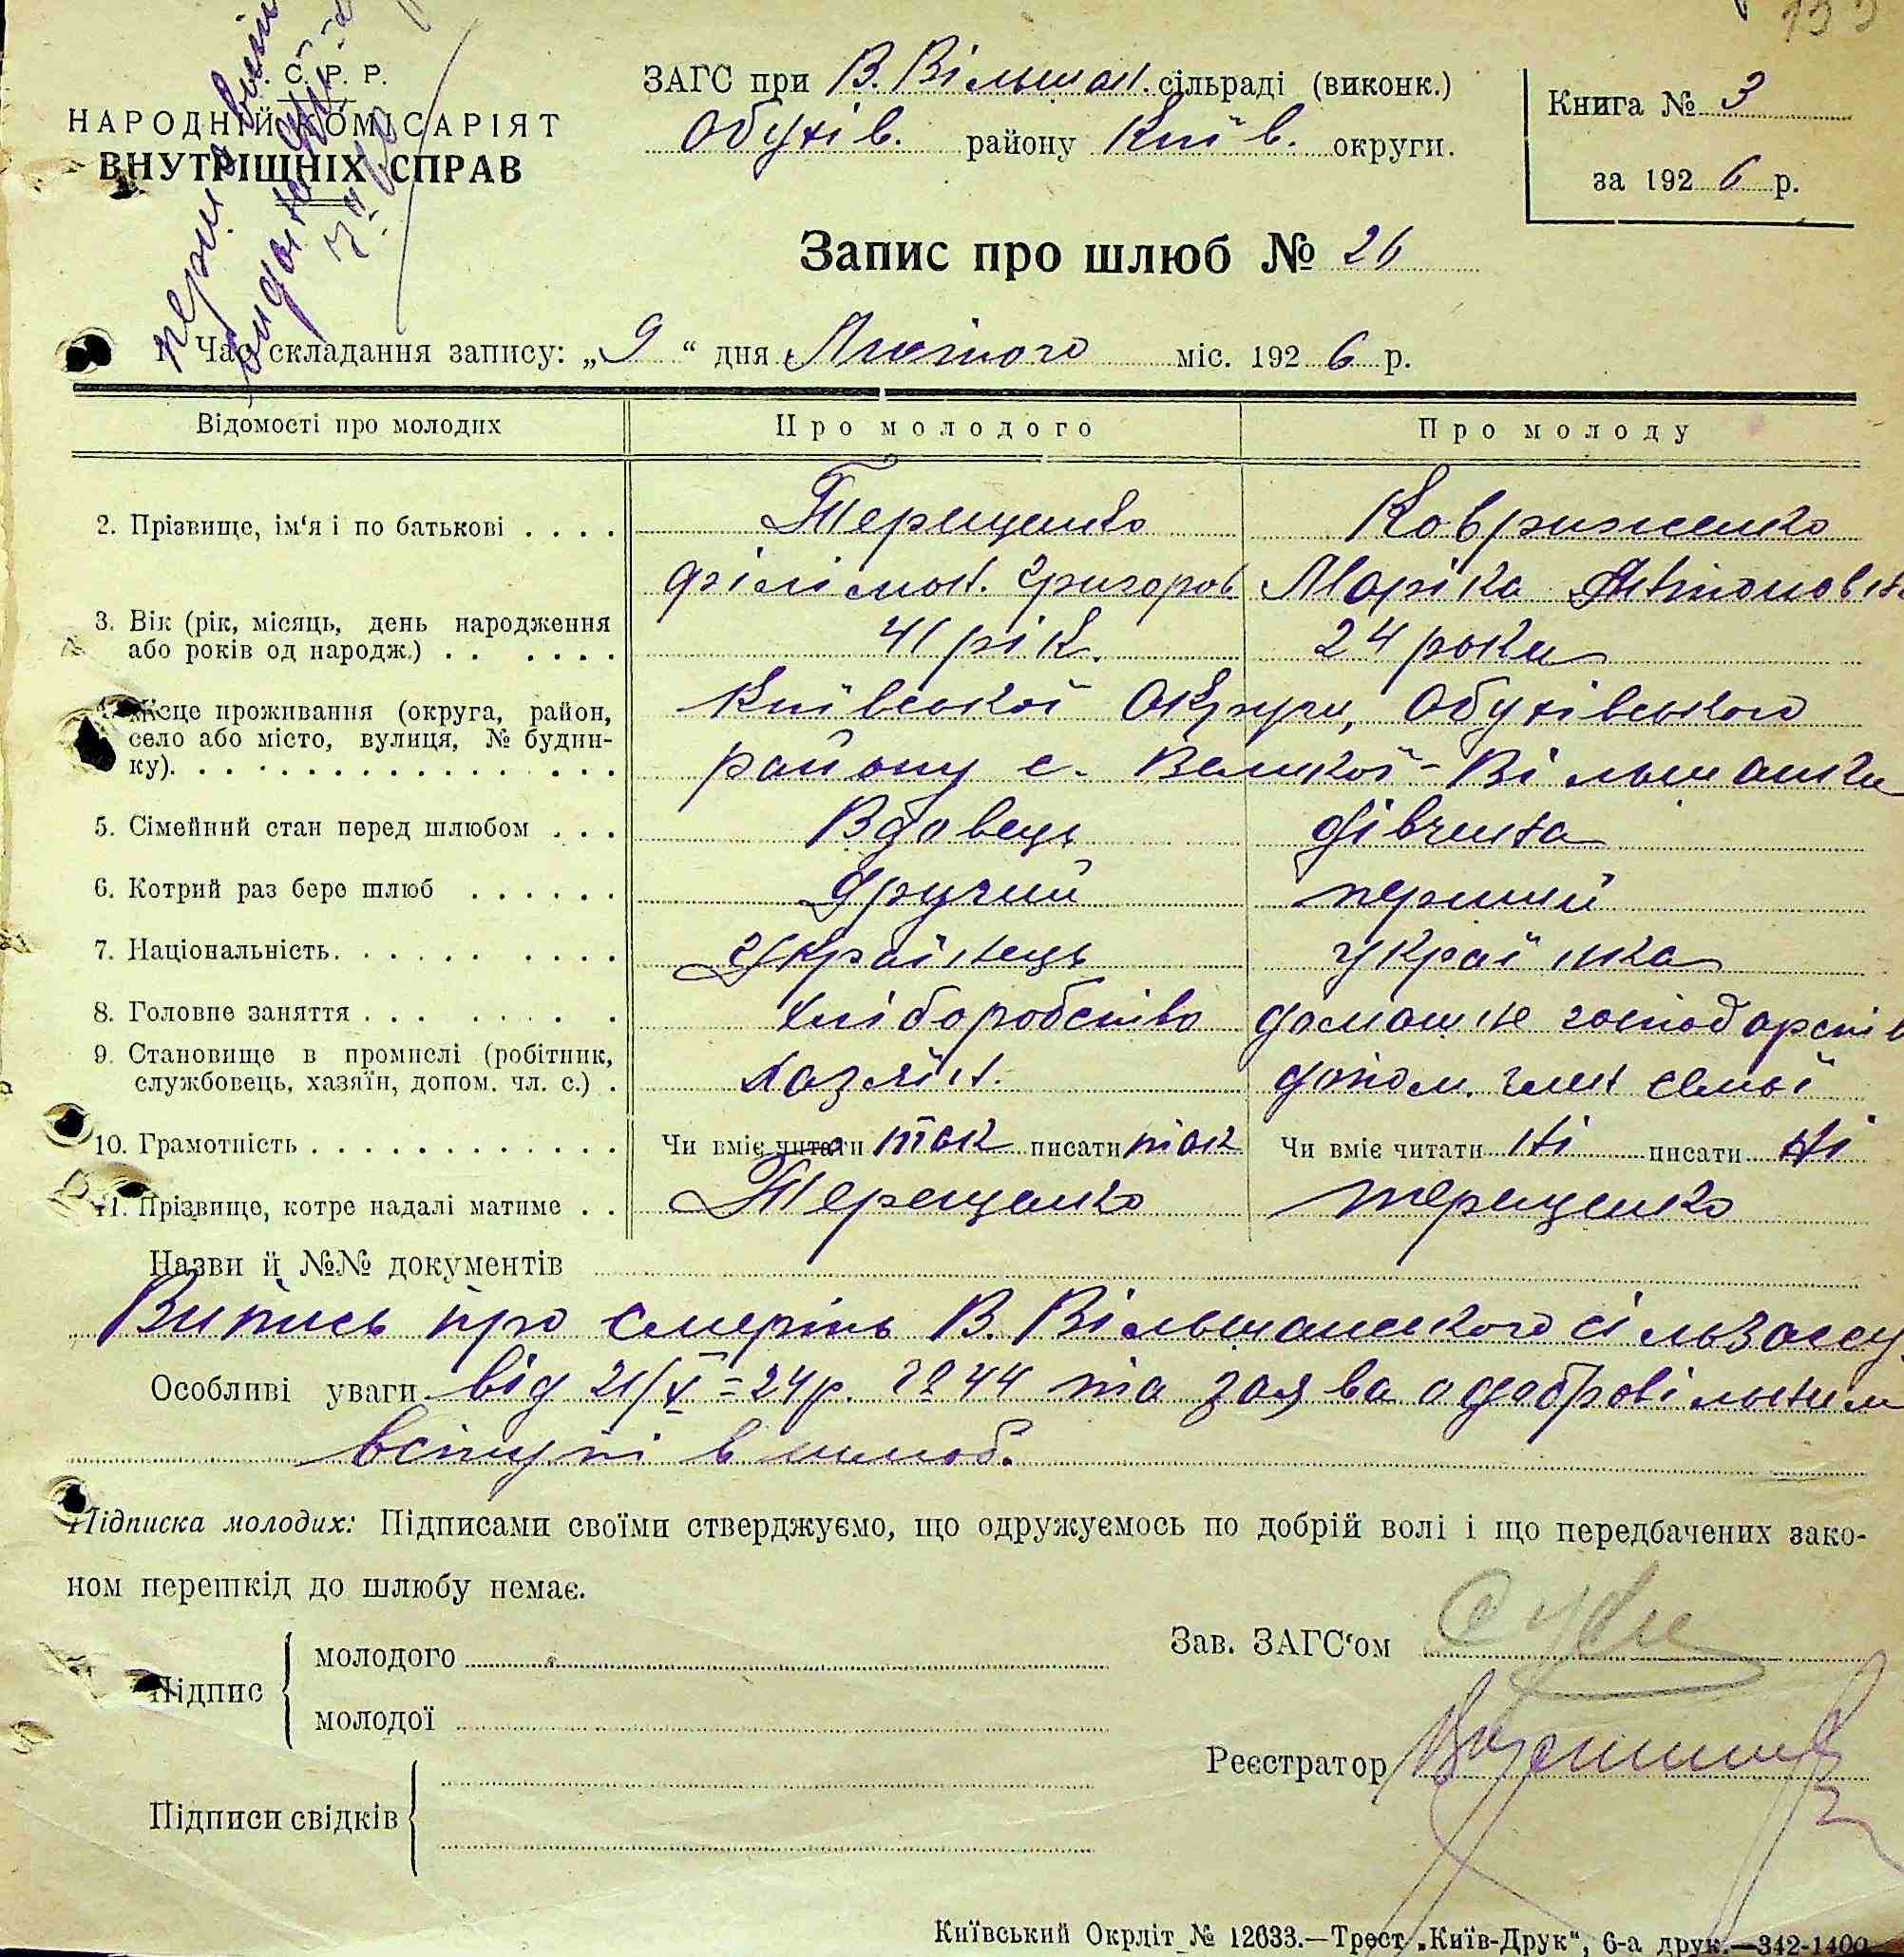 С. Р. Р.
НАРОДНІЙ КОМІСАРІЯТ
ВНУТРІШНІХ СПРАВ
ЗАГС при В. Вільшан. сільраді (виконк.)
Обухів. району Київ. округи.
Книга № 3
за 1926 р.
Запис про шлюб № 26
1. Час складання запису: „9“ дня Лютого міс. 1926 р.
Відомості про молодих Про молодого Про молоду
2. Прізвище, ім‘я і по батькові . . . . Терещенко Ковриженко
Філімон. Григоров. Марійка Антоновна
3. Вік (рік, місяць, день народження
або років од народж.) . . . . . . 41 рік. 24 роки
4. Місце проживання (округа, район,
село або місто, вулиця, № будин-
ку). . . . . . . . . . . . . . . .
Київської Округи, Обухівського
району с. Великої-Вільшанки
5. Сімейний стан перед шлюбом . . . Вдовець дівчина
6. Котрий раз бере шлюб . . . . . . Другий перший
7. Національність. . . . . . . . . . Українець українка
8. Головне заняття . . . . . . . . хліборобство домашнє господарств
9. Становище в промислі (робітник,
службовець, хазяїн, допом. чл. с.) . хазяїн. допом. член семьї
10. Грамотність . . . . . . . . . . . . Чи вміє читати так писати так Чи вміє читати ні писати ні
11. Прізвище, котре надалі матиме . . Терещенко терещенко
Назви й №№ документів
Випись про смерть В. Вільшанського сільзагсу
Особливі уваги від 21/V=24р. № 44 та заява о добровільним
вступі в шлюб.
Підписка молодих: Підписами своїми стверджуємо, що одружуємось по добрій волі і що передбачених зако-
ном перешкід до шлюбу немає.
Підпис
молодого
молодої
Зав. ЗАГС‘ом
Реєстратор
Підписи свідків
Київський Окрліт № 12633.—Трест „Київ-Друк“, 6-а друк.—342-1400